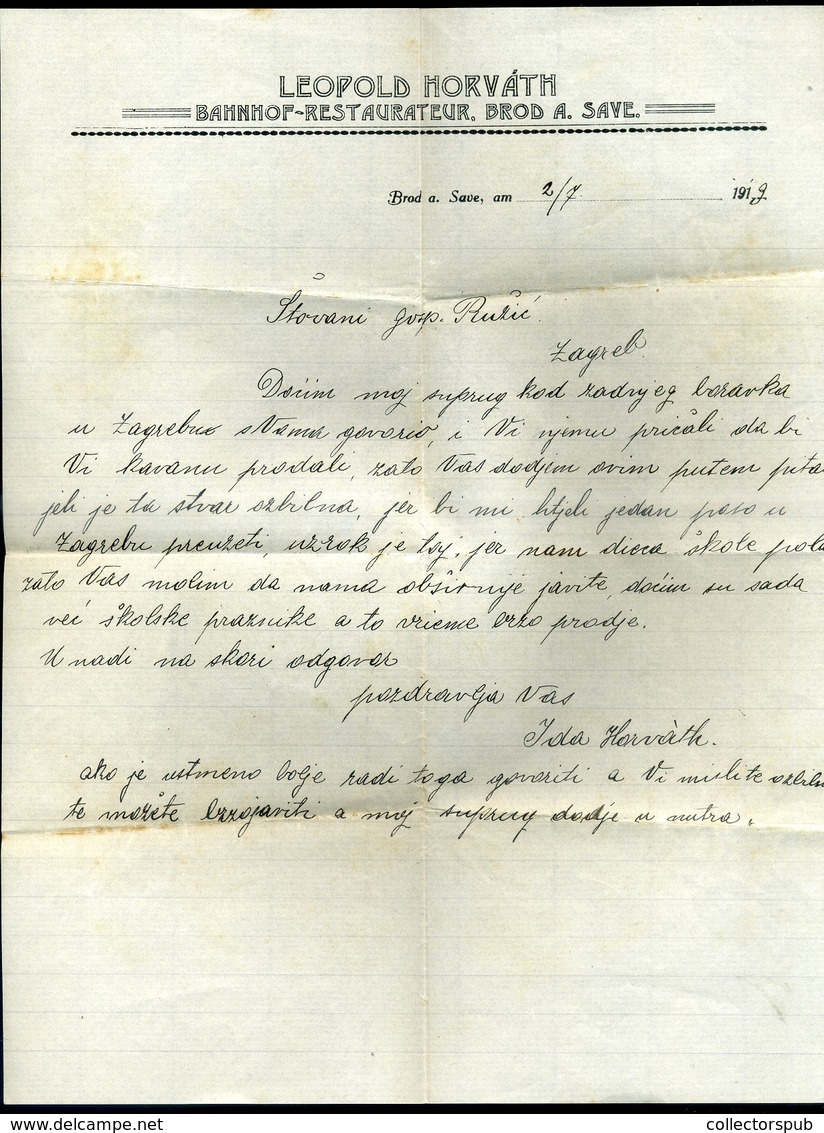 LEOPOLD HORVÁTH
BAHNHOF-RESTAURATEUR, BROD A. SAVE.
Brod a. Save, am 2/7. 1919
Štovani gosp. Ružić.
Zagreb.
Dočim moj suprug kod zadnjeg boravka
u Zagrebu s Vama govorio, i Vi njemu pričali da bi
Vi kavanu prodali, zato Vas dodjem ovim putem pita
jeli je ta stvar ozbilna, jer bi mi htjeli jedan poso u
Zagrebu preuzeti, uzrok je taj, jer nam dieca škole pola
zato Vas molim da nama obširnije javite, dočim su sada
već školske praznike a to vrieme brzo prodje.
U nadi na skori odgovor
pozdravlja Vas
Ida Horvàth.
ako je ustmeno bolje radi toga govoriti a Vi mislite ozbiln
te možete brzojaviti a moj suprug dodje u nutra.
collectorspub